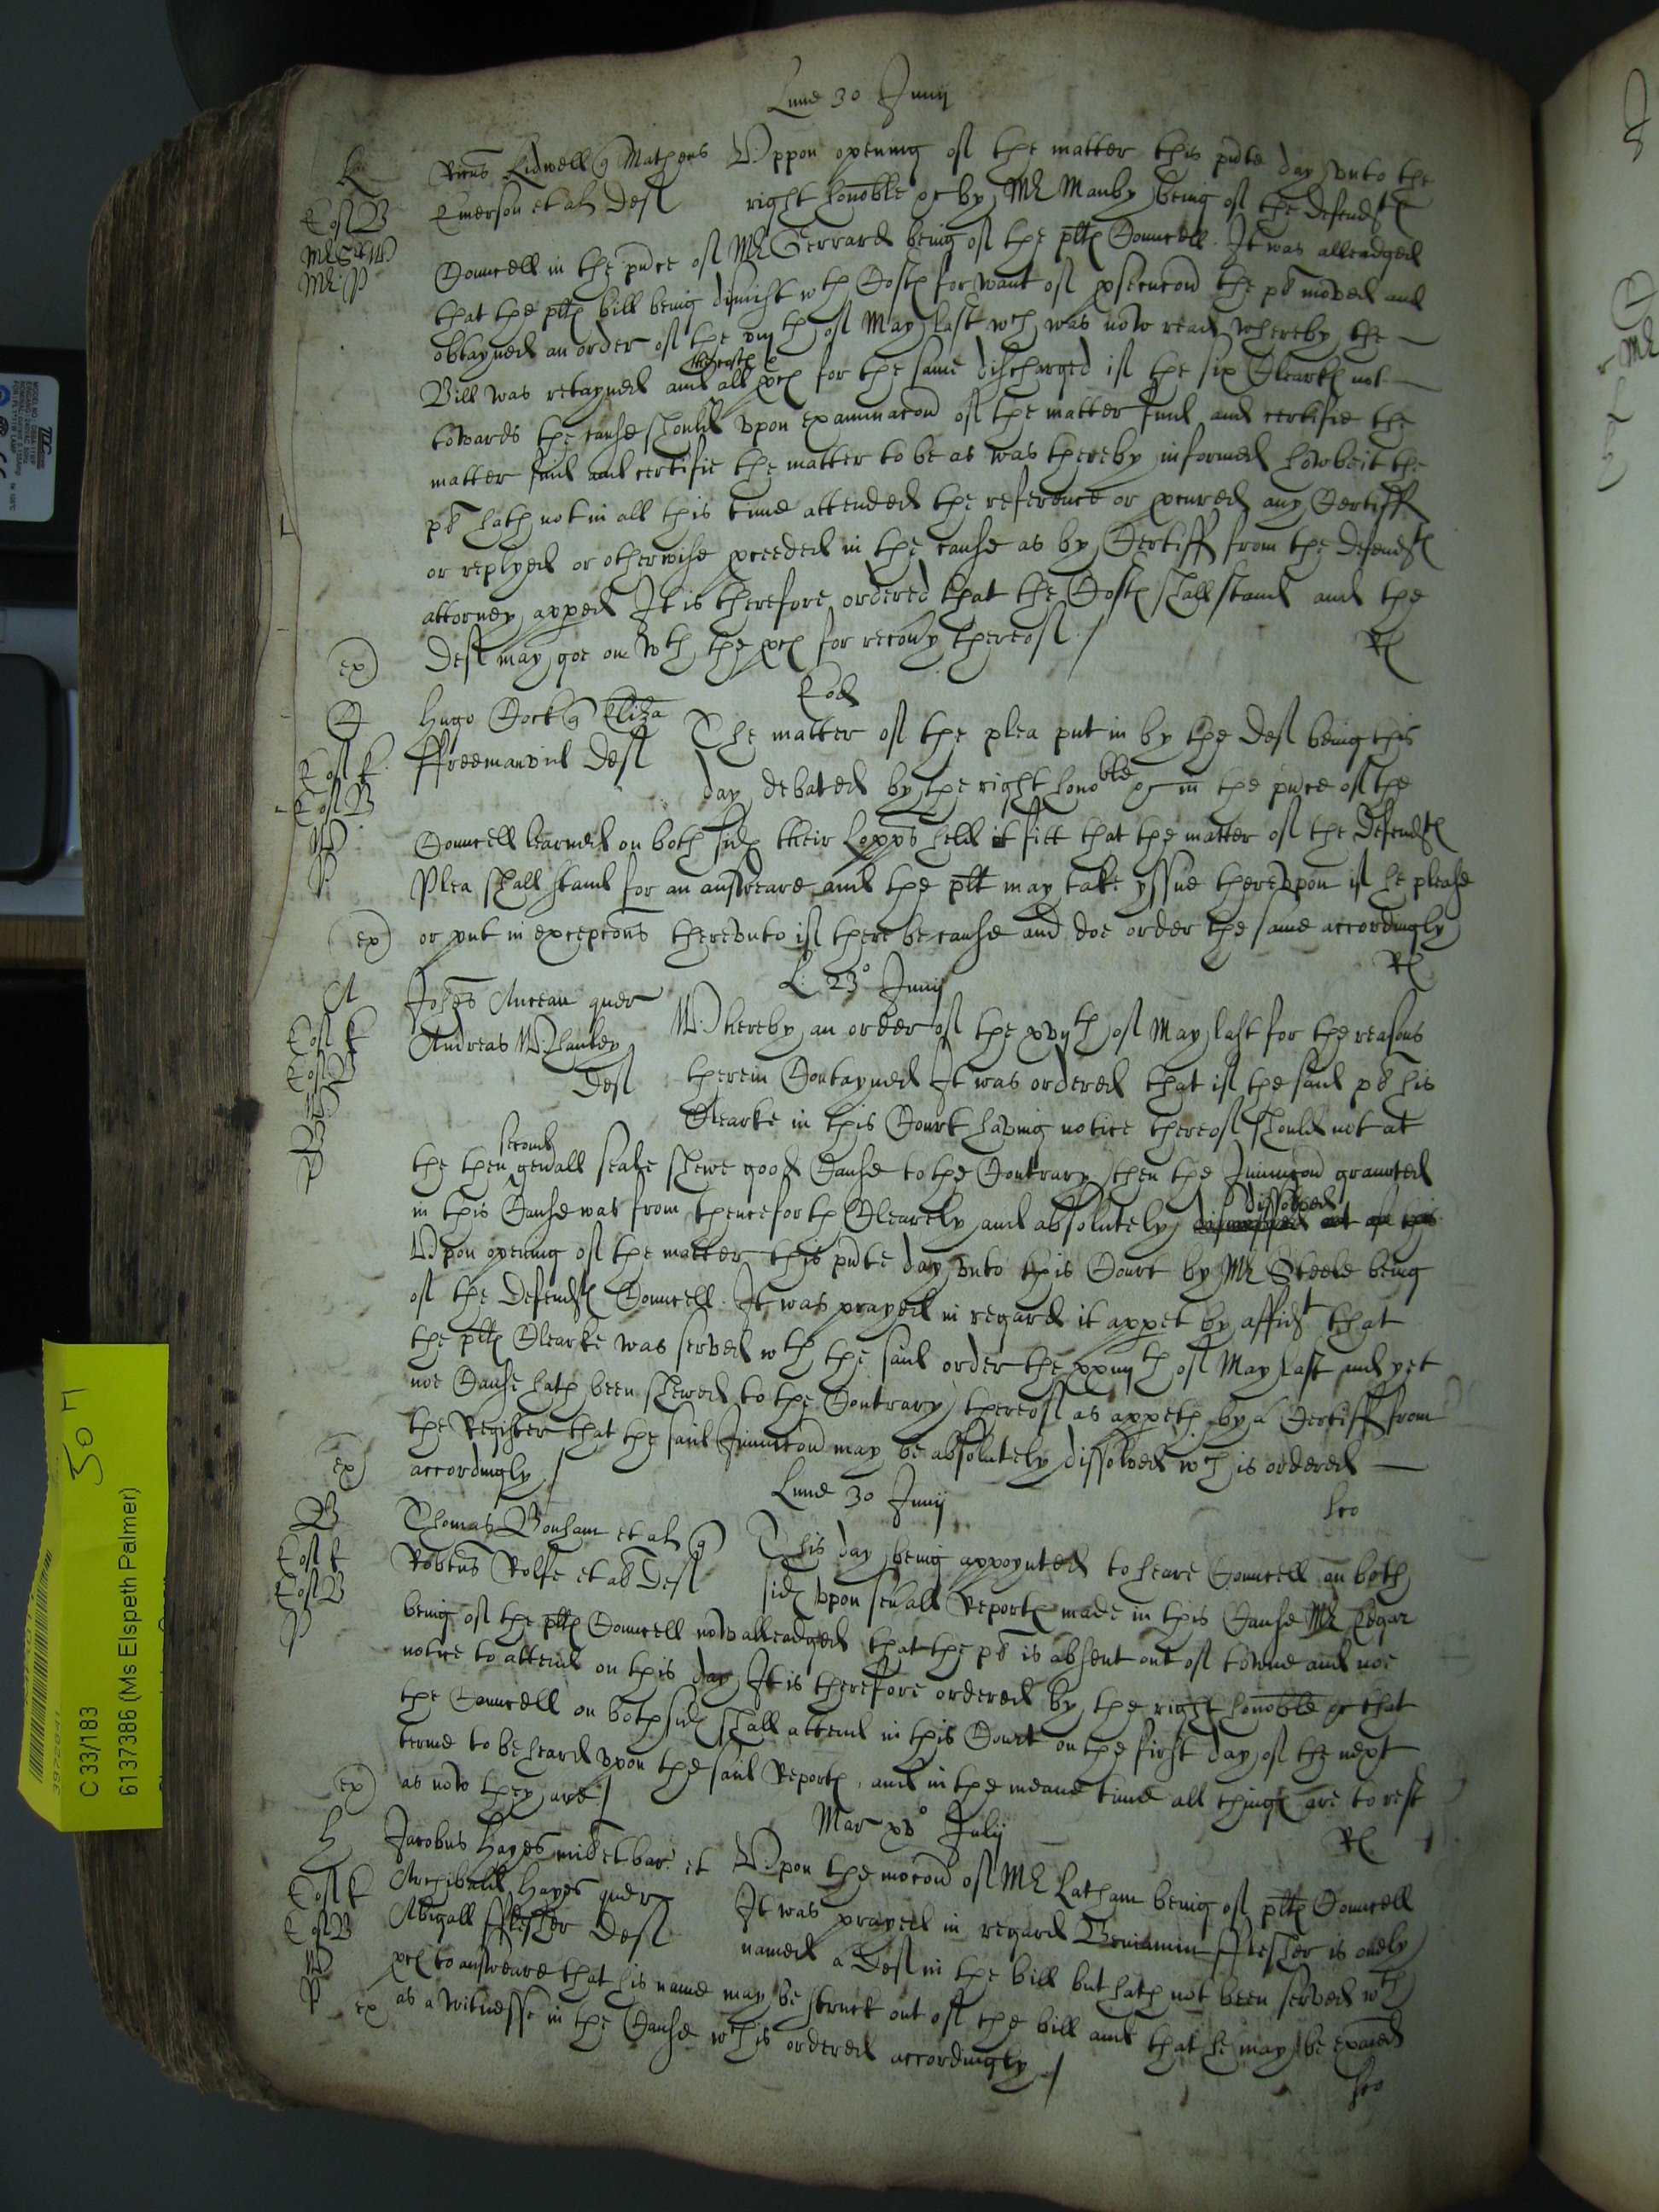 Lune 30 Junij
L
Ricus Lidwell q Matheus
Emerson et al Deft
Uppon opening of the matter this pnte day vnto the
right honoble &c by Mr Manby being of the defendts
Councell in the pnce of Mr Gerrard being of the plts Councell It was alleadged
that the plts bill being dismist wth Costs for want of psecucon the pl moved and
obtayned an order of the viijth of May last wch was now read whereby the
Bill was retayned and all pces for the same discharged if the six Clearks not
towards the cause should vpon examinacon of the matter find and certifie the
matter find and certifie the matter to be as was thereby informed howbeit the
pl hath not in all this time attended the reference or pcured any Certiff
or replyed or otherwise pceeded in the cause as by Certiff from the defendts
attorney apped It is therefore ordered that the Costs shall stand and the
Deft may goe on wth the pces for recovy thereof /
ex
Eod
Hugo Cock q Eliza
ffreeman vid Deft
The matter of the plea put in by the Deft being this
day debated by the right honoble &c in the pnce of the
Councell learned on both sides their Lopps held it fitt that the matter of the Defendts
Plea shall stand for an answeare and the plt may take yssue therevpon if he please
or put in excepcons therevnto if there be cause and doe order the same accordingly
ex
L 23o Junij
A
Johes Aucean quer
Andreas Whauley
Deft
Whereby an order of the xvijth of May last for the reasons
therein Contayned It was ordered that if the said pl his
Clearke in this Court having notice thereof should not at
the then second genall seale shewe good Cause to the Contrary then the Iniunccon graunted
in this Cause was from thenceforth Clearely and absolutely dissolved
Upon opening of the matter this pnte day vnto this Court by Mr Steele being
of the Defendts Councell. It was prayed in regard it appet by affidt that
the plts Clearke was served wth the said order the xxiiijth of May last and yet
noe Cause hath been shewed to the Contrary thereof as appeth by a Certiff from
the Register that the said Iniunccon may be absolutely dissolved wch is ordered
accordingly /
ex
Lune 30 Junij
B
Thomas Bonham et al q
Robtus Rolfe et al Deft
This day being appoynted to heare Councell on both
sides vpon seuall Reports made in this Cause Mr Edgar
being of the plts Councell now alleadged that the pl is absent out of towne and noe
notice to attend on this day It is therefore ordered by the right honoble &c that
the Councell on both sides shall attend in this Court on the first day of the next
terme to be heard vpon the said Reports, and in the meane time all things are to rest
as now they are /
ex
Mar xvo Julij
H
Jacobus Hayes mil et bar et
Archibald Hayes quer
Abigall fflesher Deft
Upon the mocon of Mr Latham being of plts Councell
It was prayed in regard Beniamin fflesher is onely
named a Deft in the bill but hath not been served wth
pces to answeare that his name may be struck out of the bill and that he may be exaied
as a witnesse in the Cause wch is ordered accordingly /
ex
C 33/183
6137386 (Ms Elspeth Palmer)